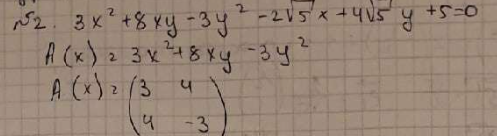 №2. 3x² + 8xy - 3y² - 2√5 x + 4√5 y + 5 = 0
A(x) = 3x² + 8xy - 3y²
A(x) = (3 4
4 -3)